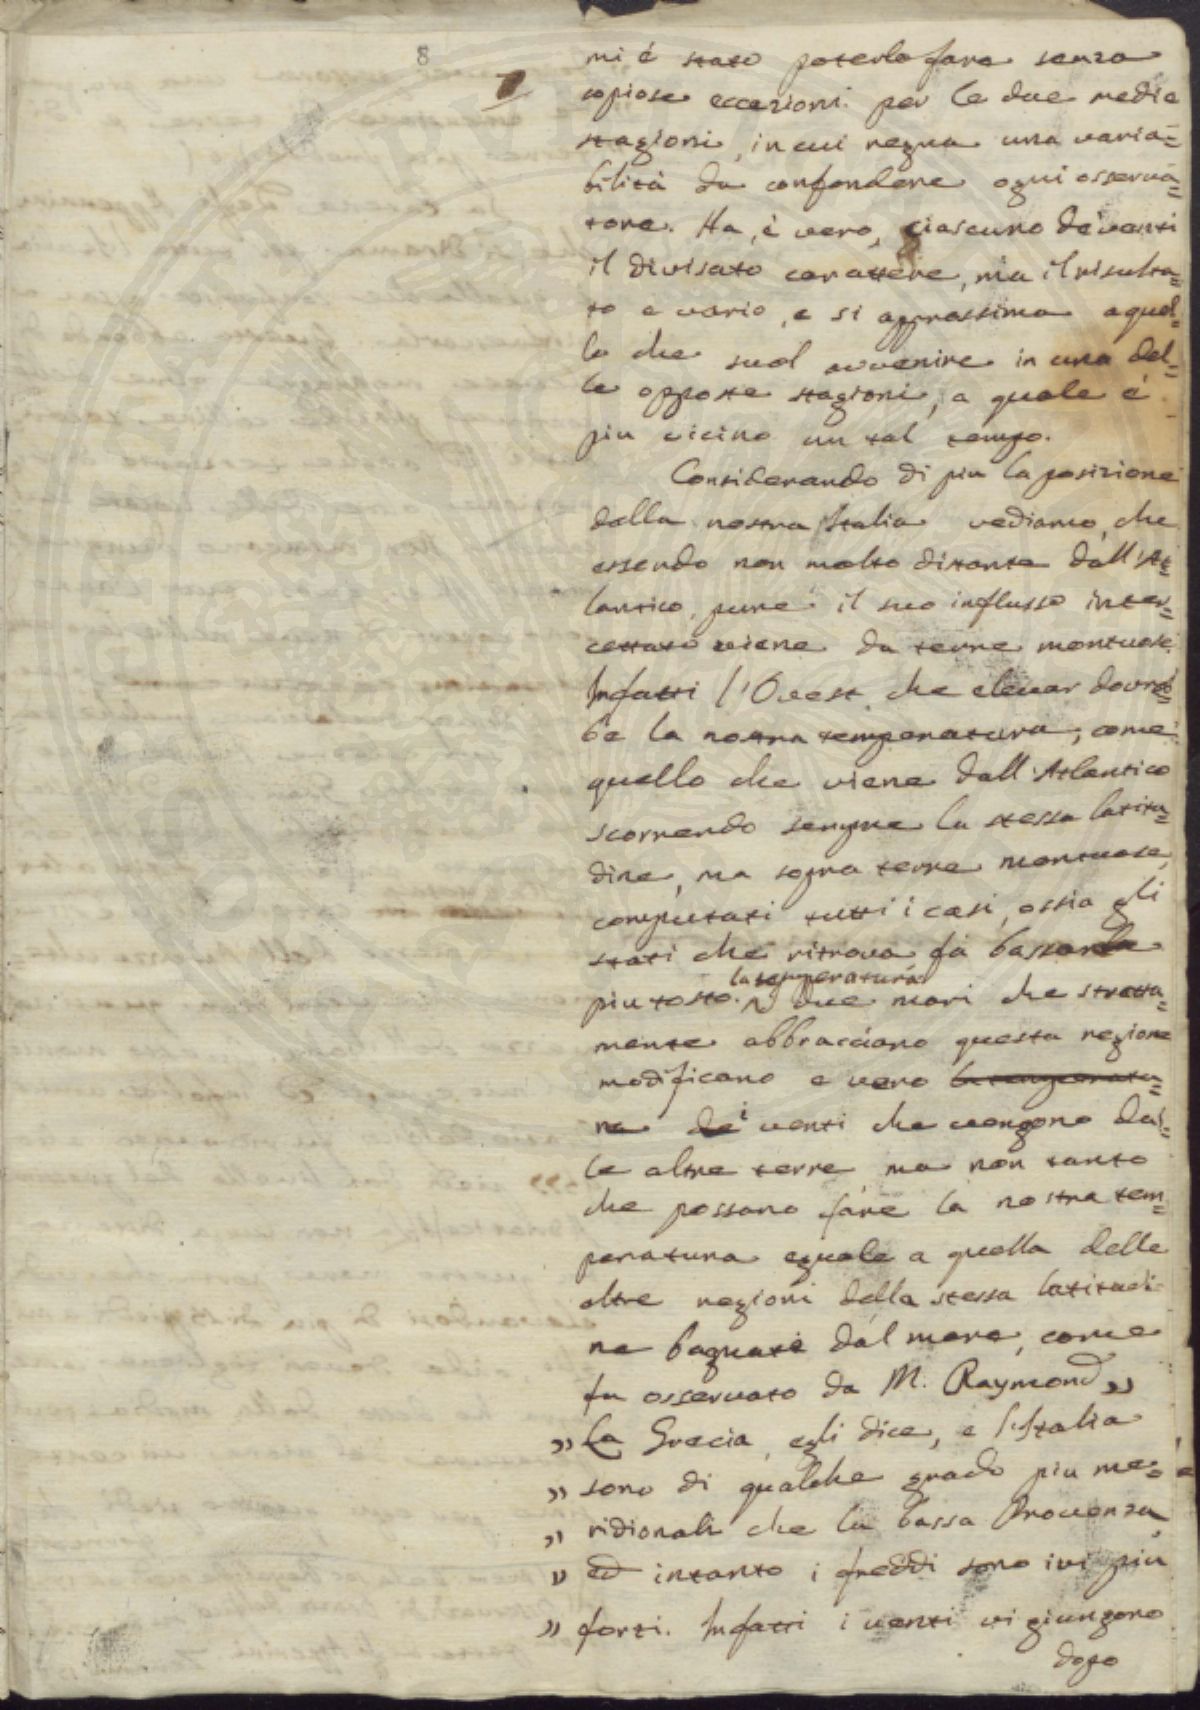 8
mi é stato poterlo fare senza
copiose eccezioni per le due medie
stagioni, in cui regna una varia=
bilità da confondere ogni osserva=
tore. Ha, è vero, ciascuno de'venti
il divisato carattere, ma il risulta=
to e vario, e si approssima a quel=
lo che suol avvenire in una del=
le opposte stagioni, a quale é
piu vicino un tal tempo.
Considerando di piu la posizione
della nostra Italia vediamo, che
essendo non molto distante dall'At=
lantico, pure il suo influsso inter=
cettato viene da terre montuose.
Infatti l'Ovest, che elevar dovreb
be la nostra temperatura, come
quello che viene dall'Atlantico
scorrendo sempre la stessa latitu=
dine, ma sopra terre montuose,
computati tutti i casi, ossia gli
stati che ritrova fà bassarla
la temperatura
piu tosto. I due mari che stretta=
mente abbracciano questa regione
modificano e vero la temperatu=
ra dei venti che vengono dal=
le altre terre, ma non tanto
che possano fare la nostra tem=
peratura eguale a quella delle
altre regioni della stessa latitudi
ne bagnate dal mare, come
fu osservato da M. Raymond „
„ La Grecia, egli dice, e l'Italia
„ sono di qualche grado piu me=
„ ridionali che la bassa Provenza,
„ ed intanto i freddi sono ivi più
„ forti. Infatti i venti vi giungono
dopo